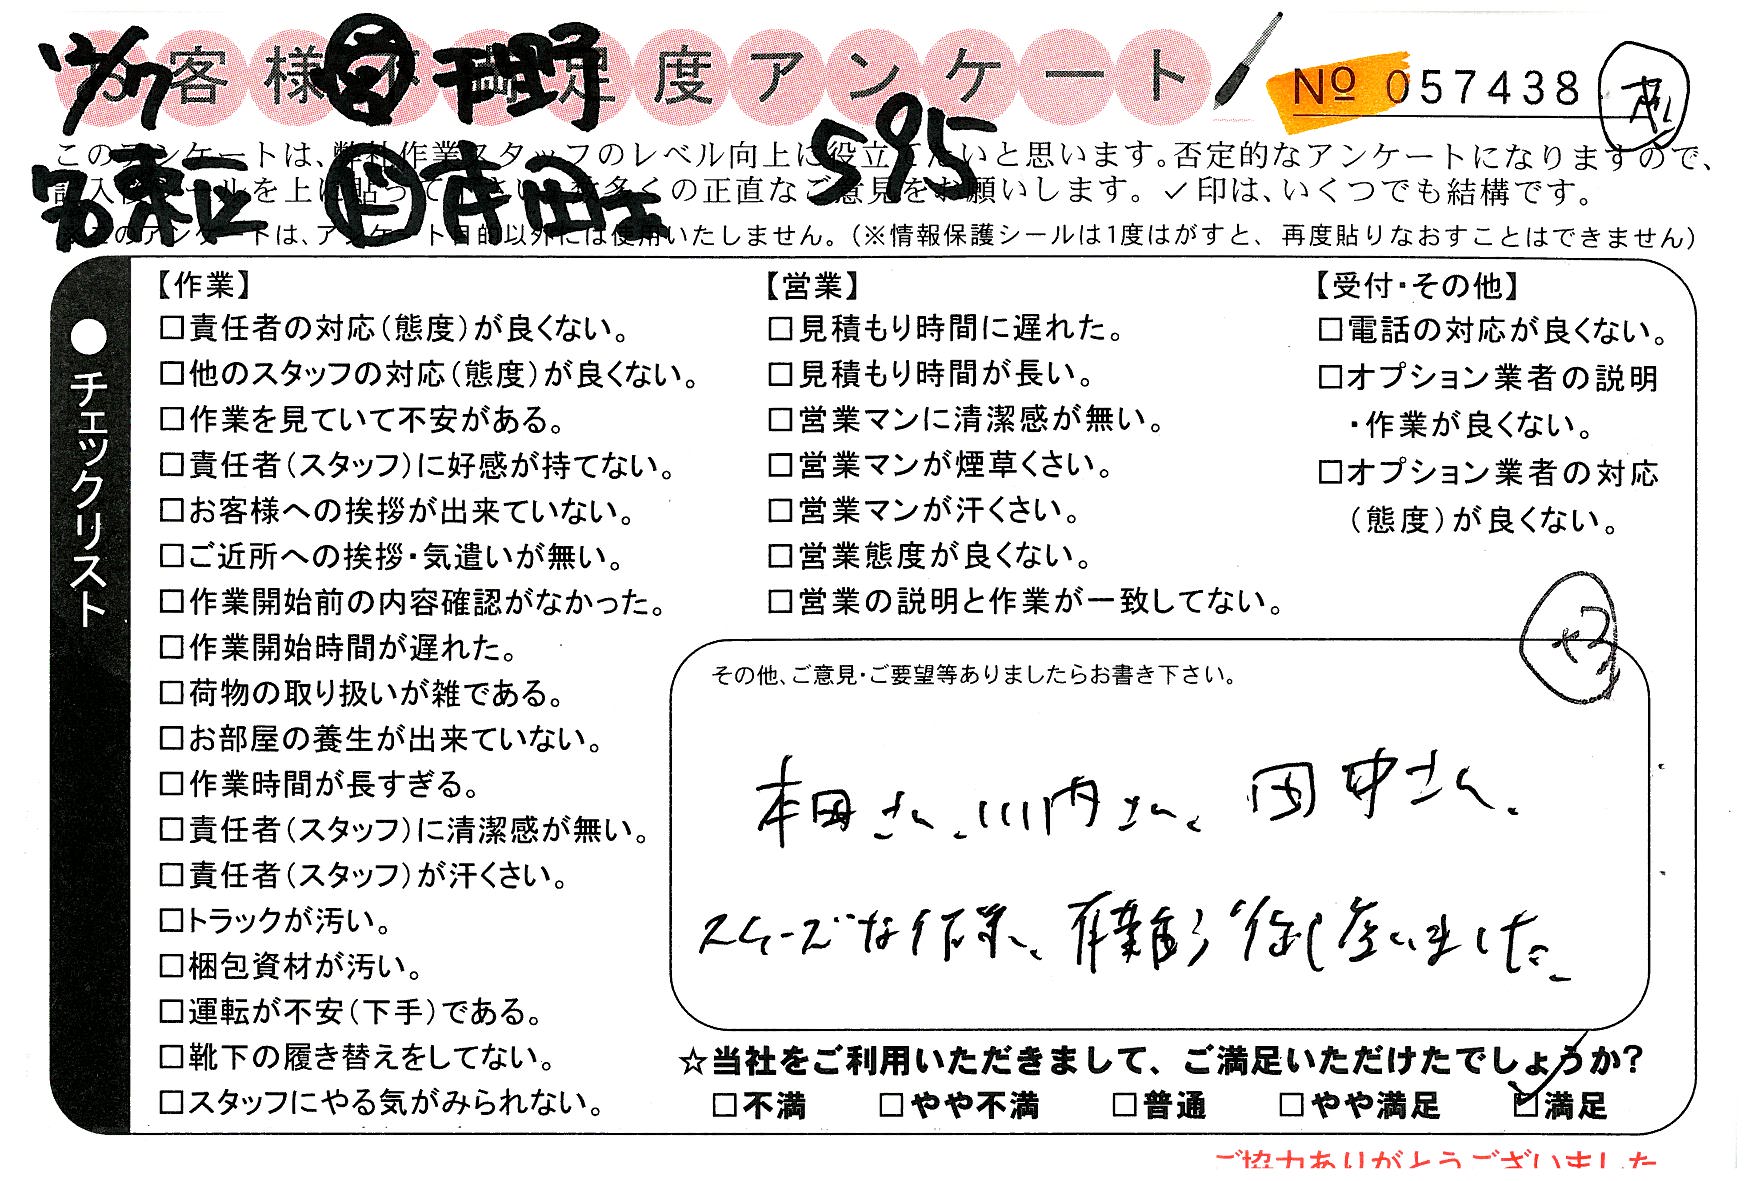 お客様不満足度アンケート
№ 057438
12/7 営 平野
595
このアンケートは、弊社作業スタッフのレベル向上に役立てたいと思います。否定的なアンケートになりますので、
記入後シールを上に貼って下さい。数多くの正直なご意見をお願いします。✓印は、いくつでも結構です。
※このアンケートは、アンケート目的以外には使用いたしません。（※情報保護シールは1度はがすと、再度貼りなおすことはできません）
●チェックリスト
【作業】
□責任者の対応（態度）が良くない。
□他のスタッフの対応（態度）が良くない。
□作業を見ていて不安がある。
□責任者（スタッフ）に好感が持てない。
□お客様への挨拶が出来ていない。
□ご近所への挨拶・気遣いが無い。
□作業開始前の内容確認がなかった。
□作業開始時間が遅れた。
□荷物の取り扱いが雑である。
□お部屋の養生が出来ていない。
□作業時間が長すぎる。
□責任者（スタッフ）に清潔感が無い。
□責任者（スタッフ）が汗くさい。
□トラックが汚い。
□梱包資材が汚い。
□運転が不安（下手）である。
□靴下の履き替えをしてない。
□スタッフにやる気がみられない。
【営業】
□見積もり時間に遅れた。
□見積もり時間が長い。
□営業マンに清潔感が無い。
□営業マンが煙草くさい。
□営業マンが汗くさい。
□営業態度が良くない。
□営業の説明と作業が一致してない。
【受付・その他】
□電話の対応が良くない。
□オプション業者の説明
・作業が良くない。
□オプション業者の対応
（態度）が良くない。
その他、ご意見・ご要望等ありましたらお書き下さい。
本田さん、川内さん、田中さん、
スムーズな作業、有難う御座いました。
☆当社をご利用いただきまして、ご満足いただけたでしょうか?
□不満 □やや不満 □普通 □やや満足 ☑満足
ご協力ありがとうございました